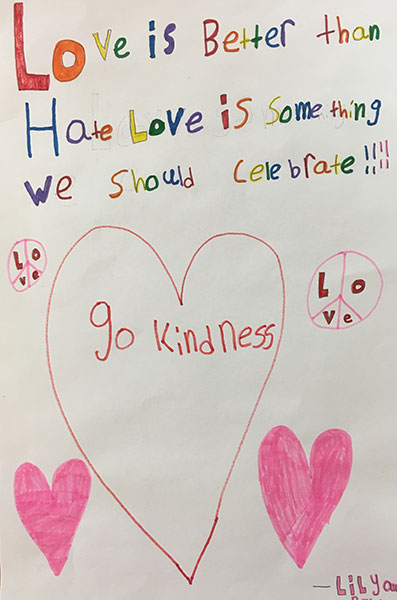 Love is Better than
Hate Love is Something
we should celebrate!!!!
Lo
ve
Lo
ve
go kindness
— LiLya